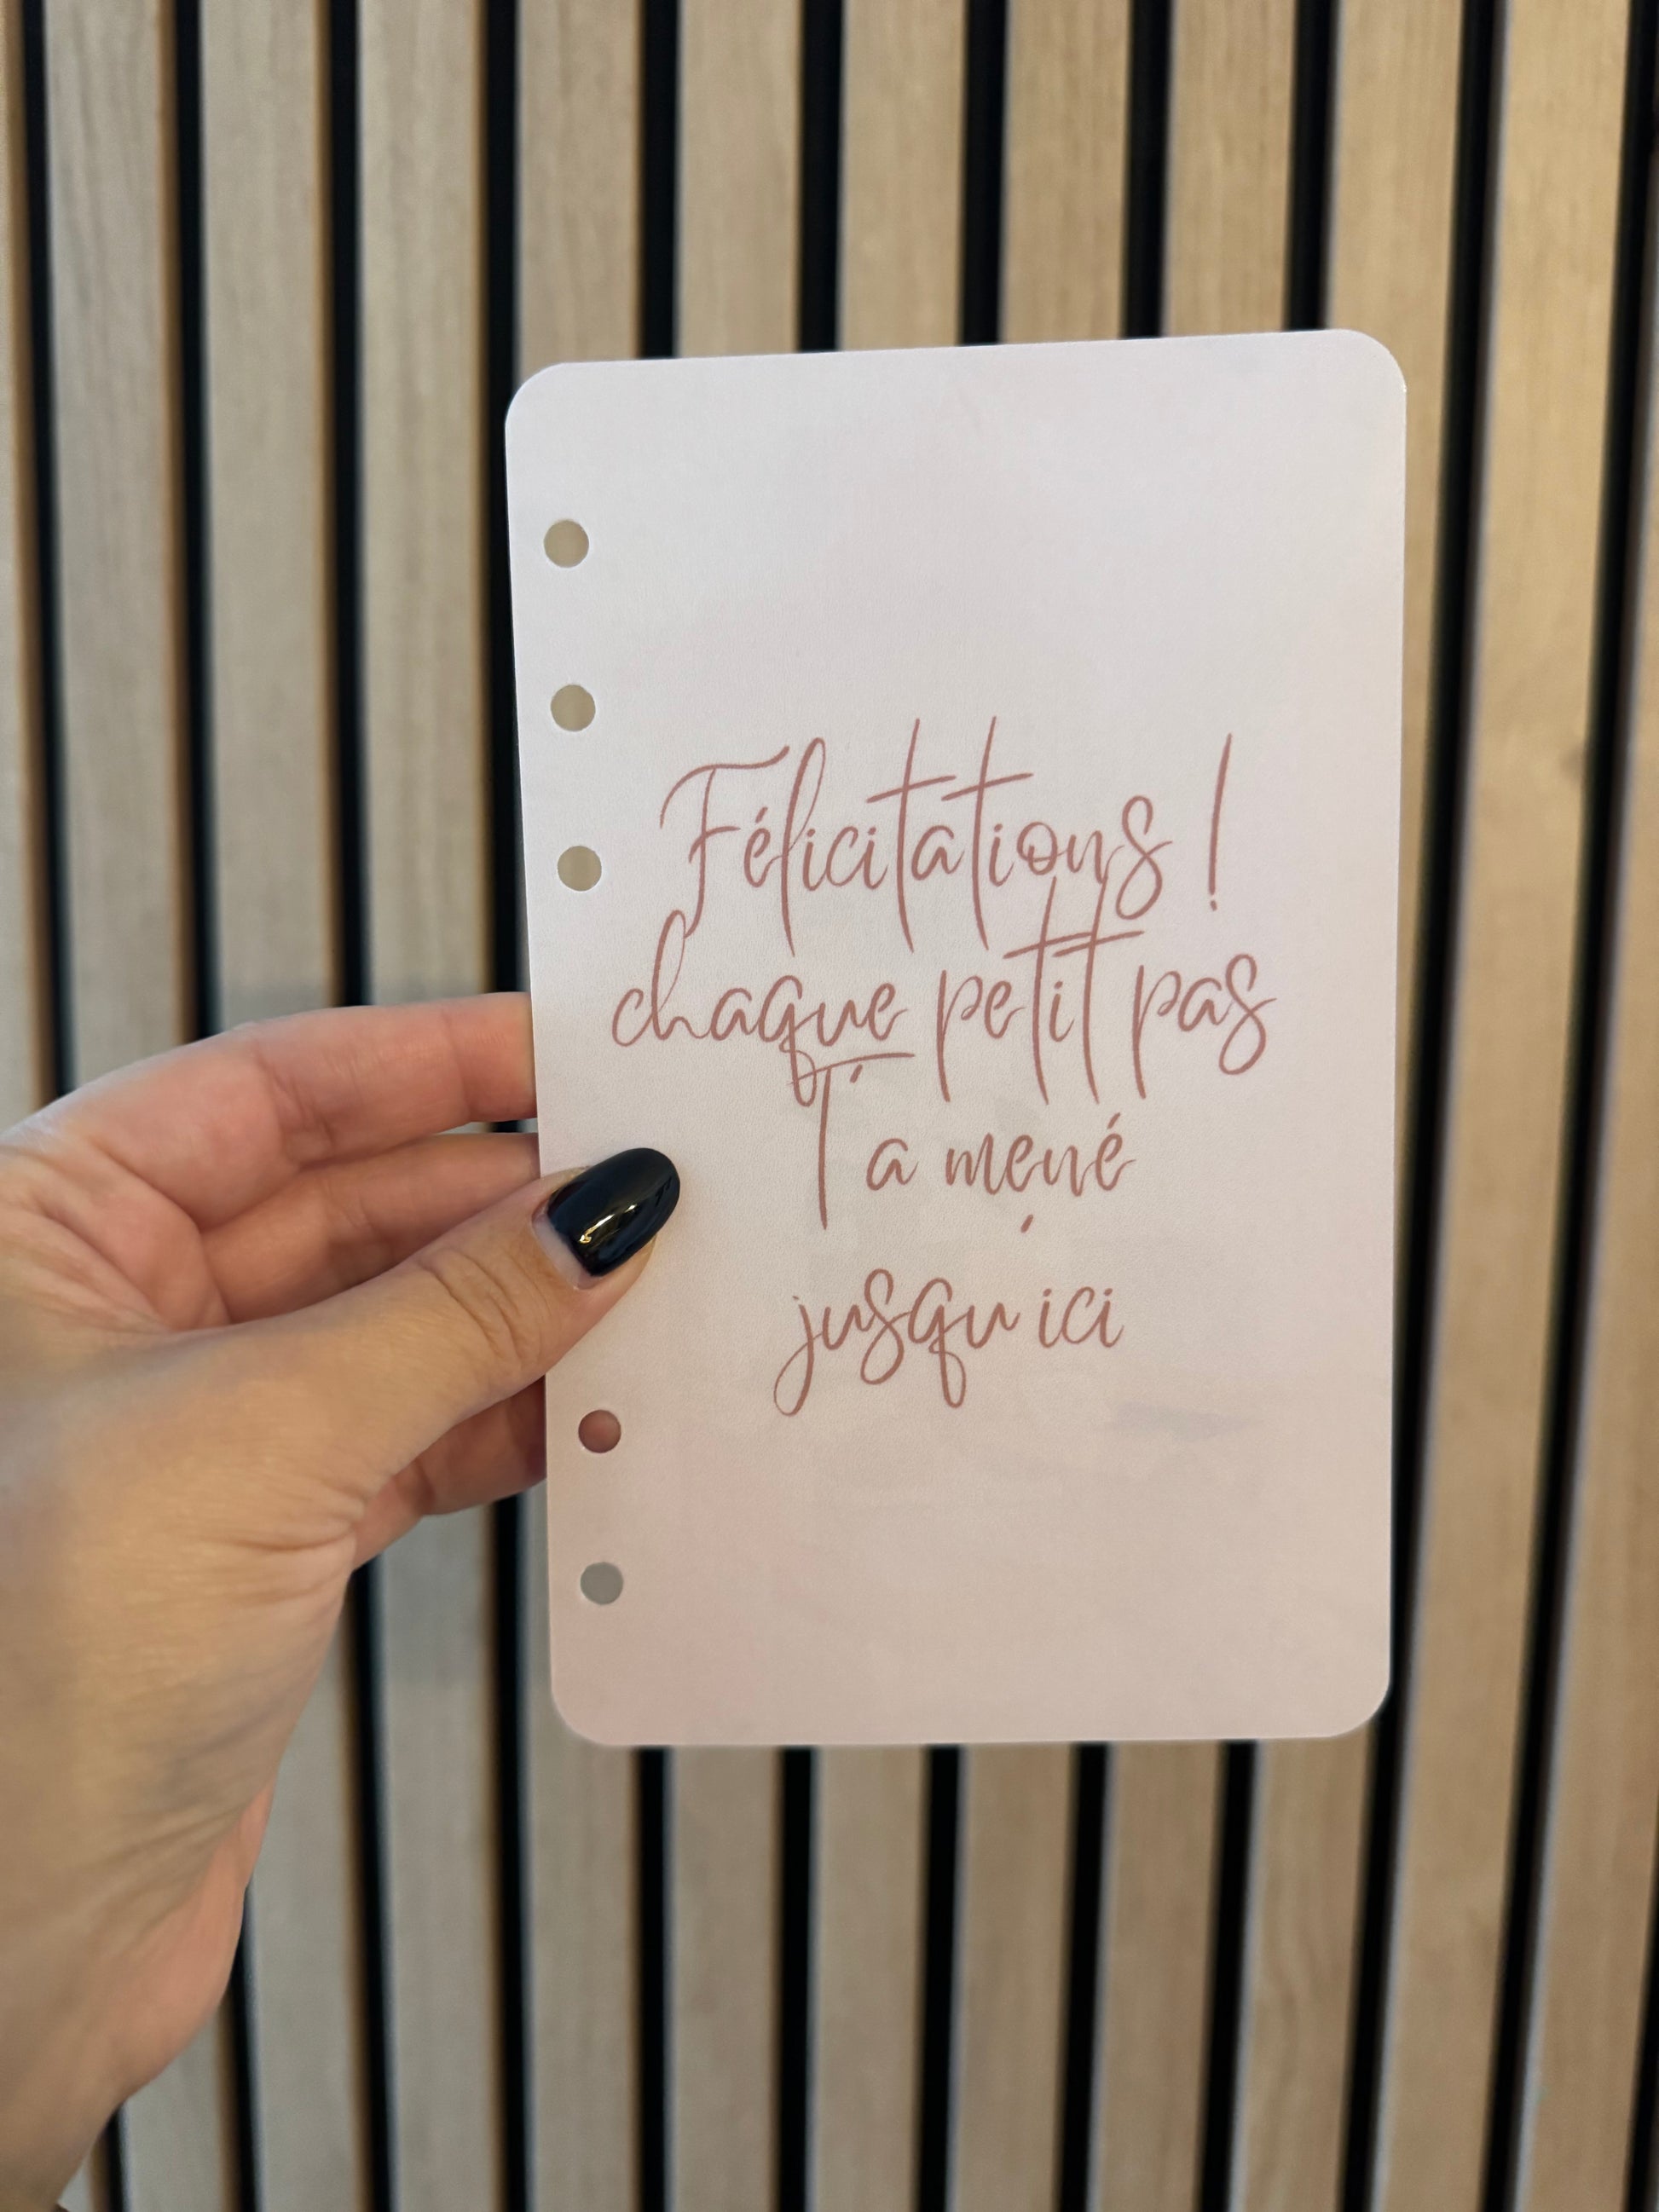 Félicitations !
chaque petit pas
T'a mené
jusqu'ici